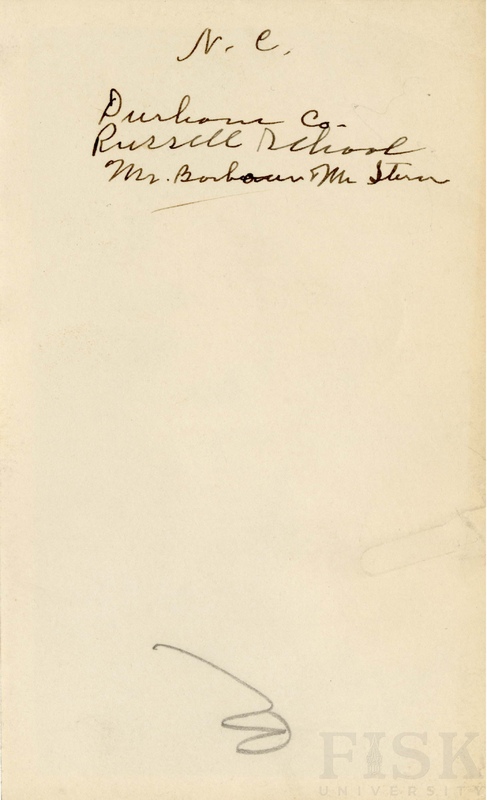 N. C.
Durham Co.
Russell School
Mr. Barbour & Mr Stern
FISK
UNIVERSITY